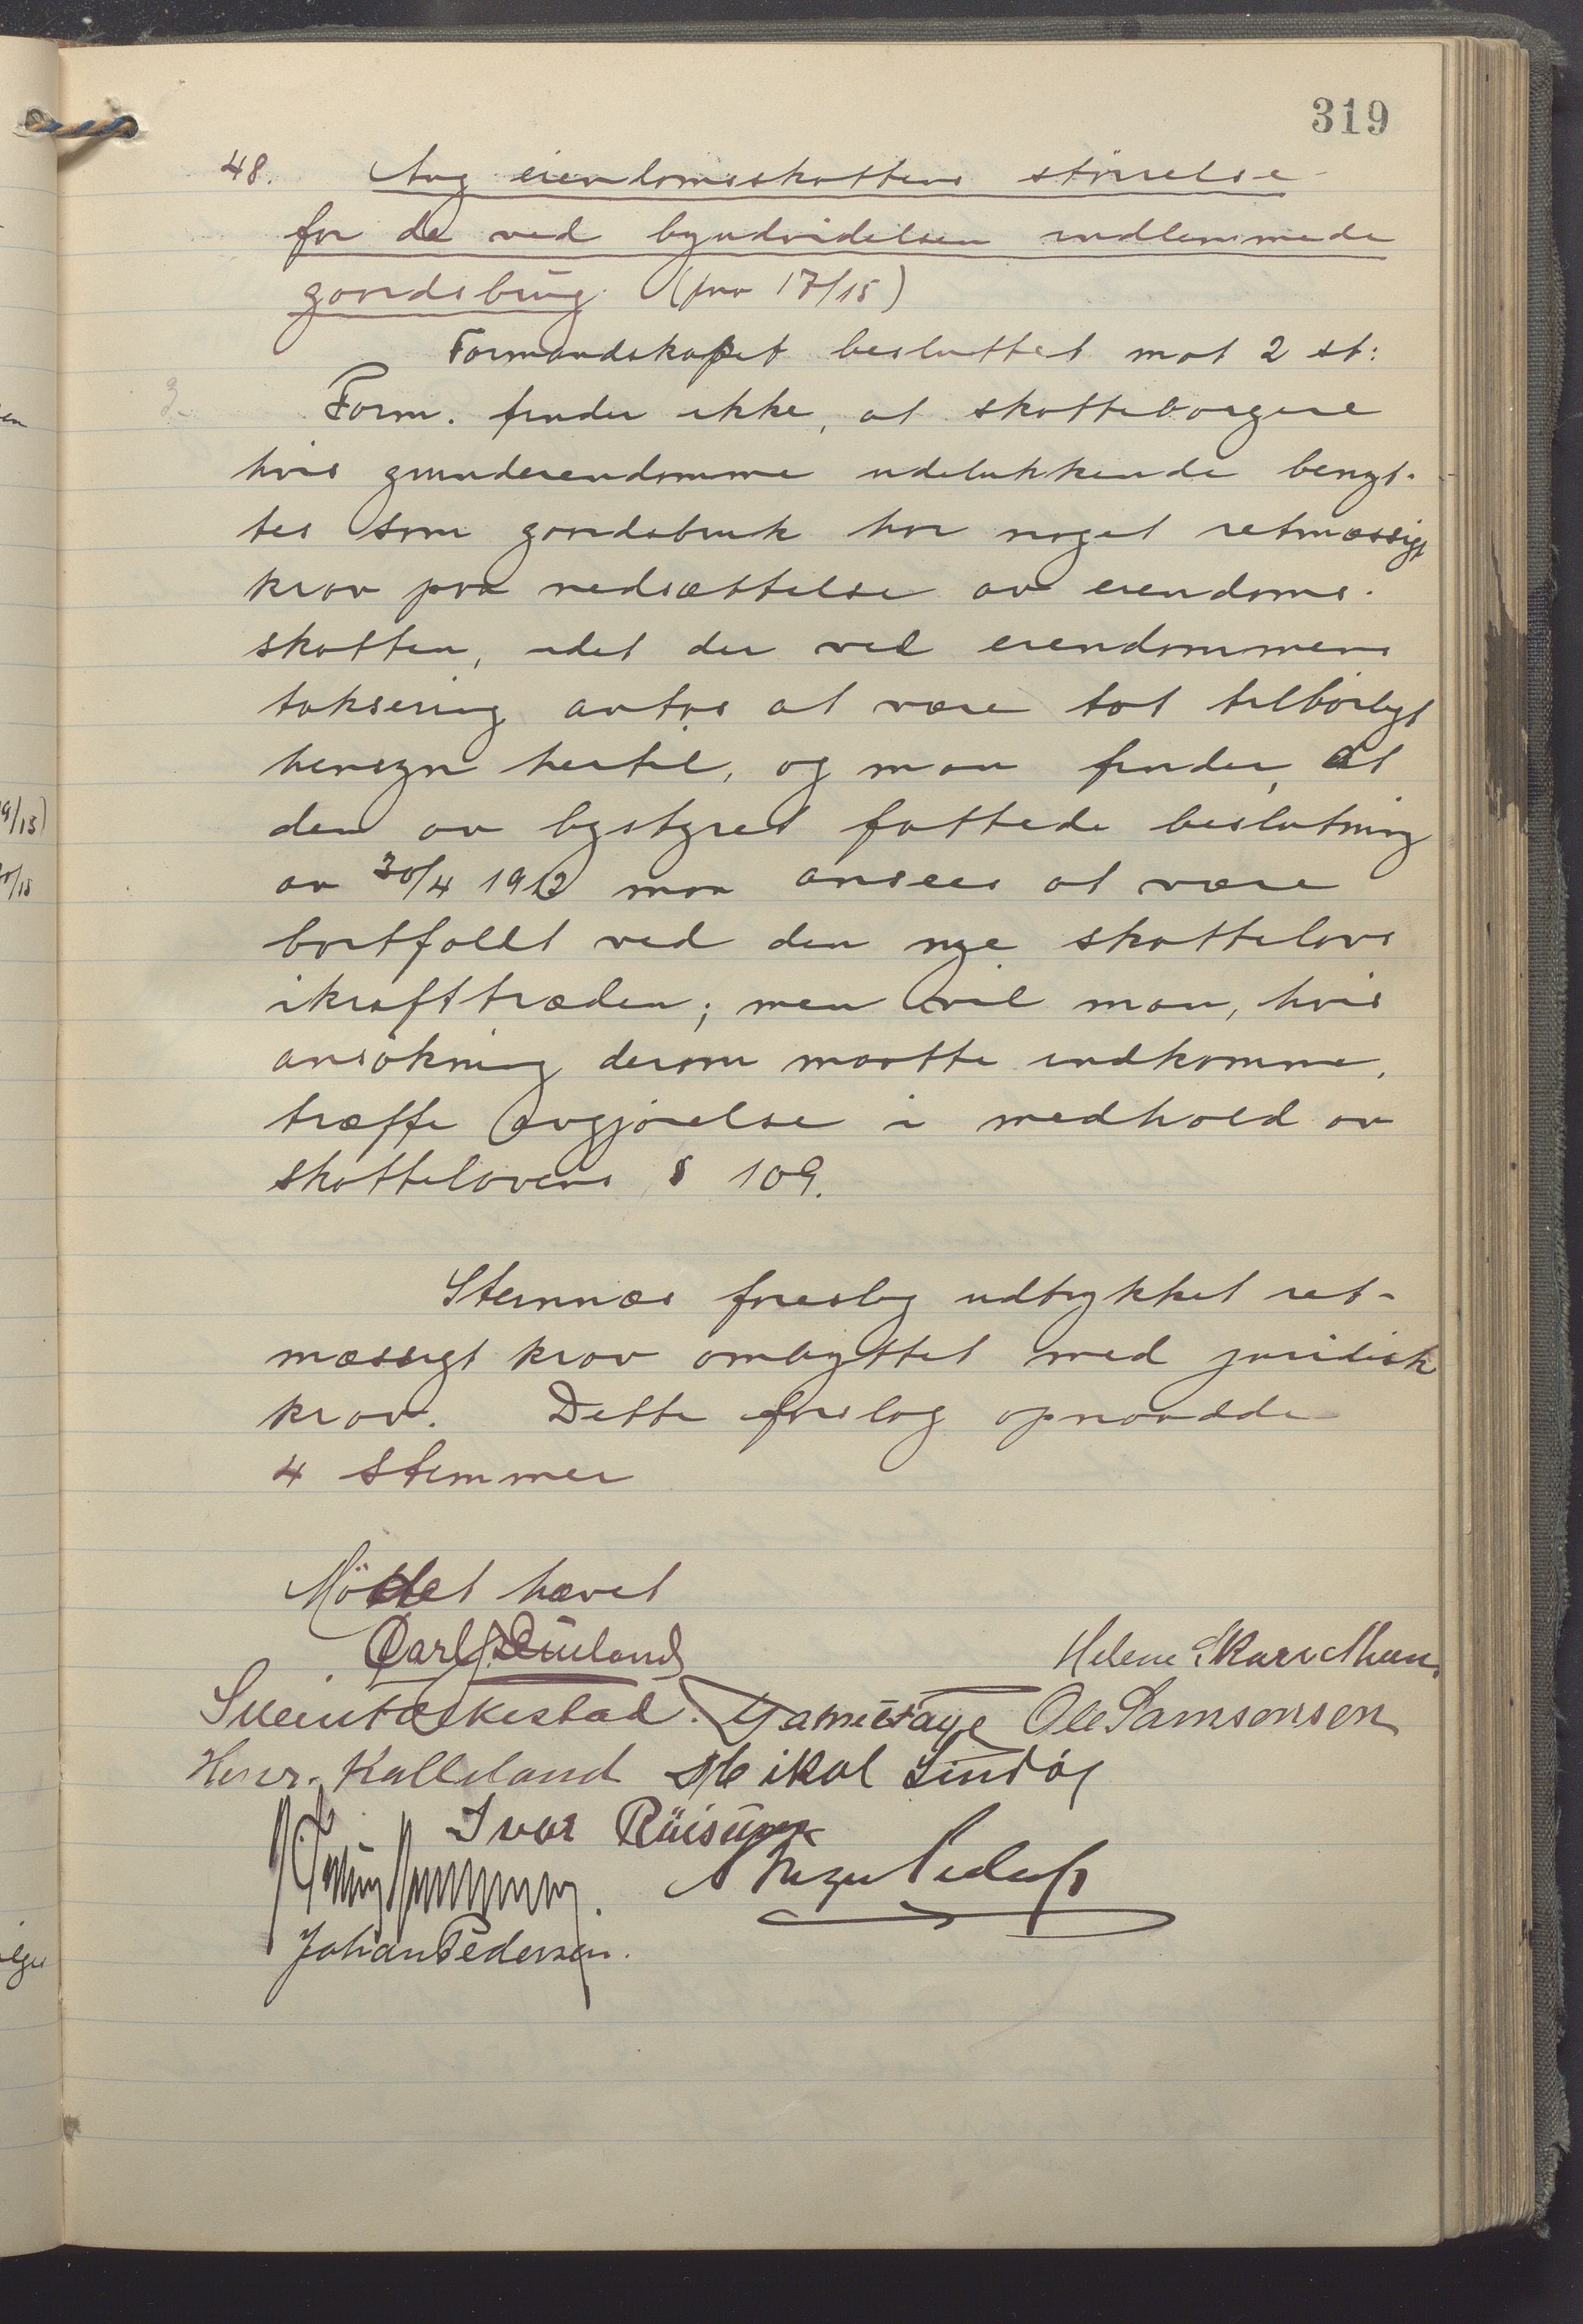 319
48. Ang eiendomsskattens störrelse
for de ved byudvidelsen indlemmede
gaardsbrug. (jnr 17/15)
Formandskapet besluttet mot 2 st:
3. Form. finder ikke, at skatteborgere
hvis grundeiendomme udelukkende benyt-
tes som gaardsbruk har noget retmæssigt
krav paa nedsættelse av eiendoms-
skatten, idet der ved eiendommens
taksering antas at være tat tilbörligt
hensyn hertil, og man finder, at
den av bystyret fattede beslutning
av 30/4 1912 maa ansees at være
bortfaldt ved den nye skattelovs
ikrafttræden; men vil man, hvis
ansökning derom maatte indkomme,
træffe avgjörelse i medhold av
skattelovens § 109.
Stennæs foreslog udtrykket ret-
mæssigt krav ombyttet med juridisk
krav. Dette forslag opnaadde
4 stemmer
Mödet hævet
Helene Skare
Ole Samsonsen
Henr. Kalleland Mikal Lindöy
Ivar
Johan Pedersen.
9/15)